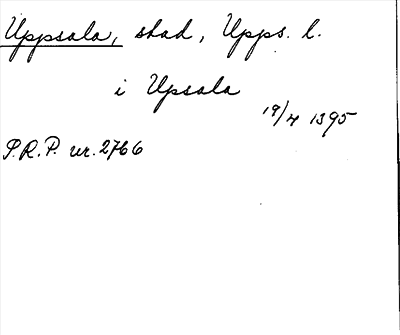 Uppsala, stad, Upps. l.
i Upsala
19/4 1395
S.R.P. nr. 2766